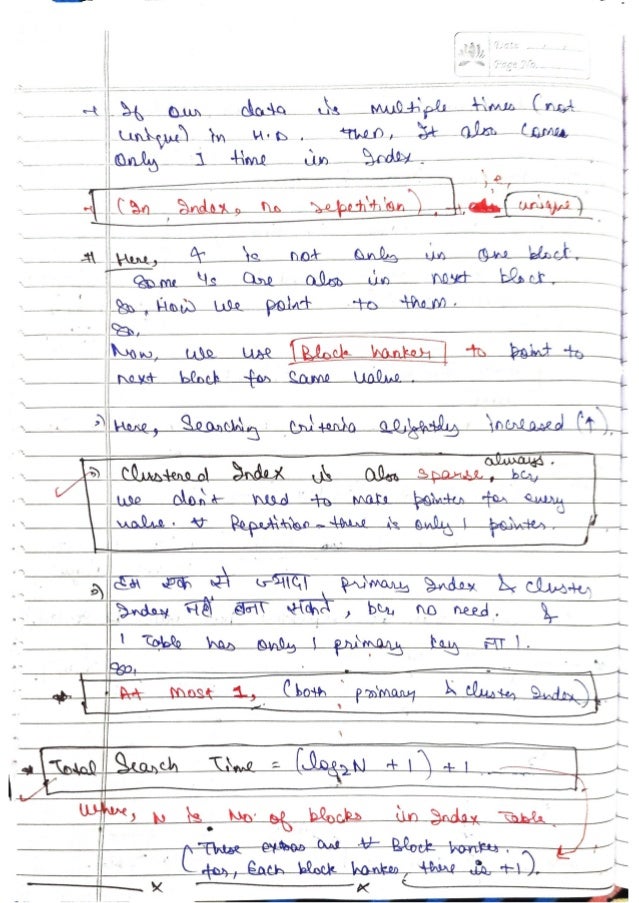 Date
Page No.
→ If our data is multiple times (not
unique) in H.D. Then, It also comes
only 1 time in Index.
→ (In Index, no repetition). i.e, (unique)
# Here, 4 is not only in one block.
Some 4s are also in next block.
So, How we point to them.
So,
Now, we use Block hanker to point to
next block for same value.
⇒ Here, Searching criteria slightly increased (↑).
⇒ Clustered Index is also sparse always, bcz
we don't need to make pointer for every
value. ∀ Repetition - there is only 1 pointer.
⇒ हम एक से ज्यादा primary Index & cluster
Index नहीं बना सकते, bcz no need. &
1 Table has only 1 primary key ना।
So,
* At most 1, (both primary & cluster Index)
* Total Search Time = (log₂N + 1) + 1
where, N is No. of blocks in Index Table.
(These extras are ∀ Block hanker.
for, Each block hanker, there is +1).
x x